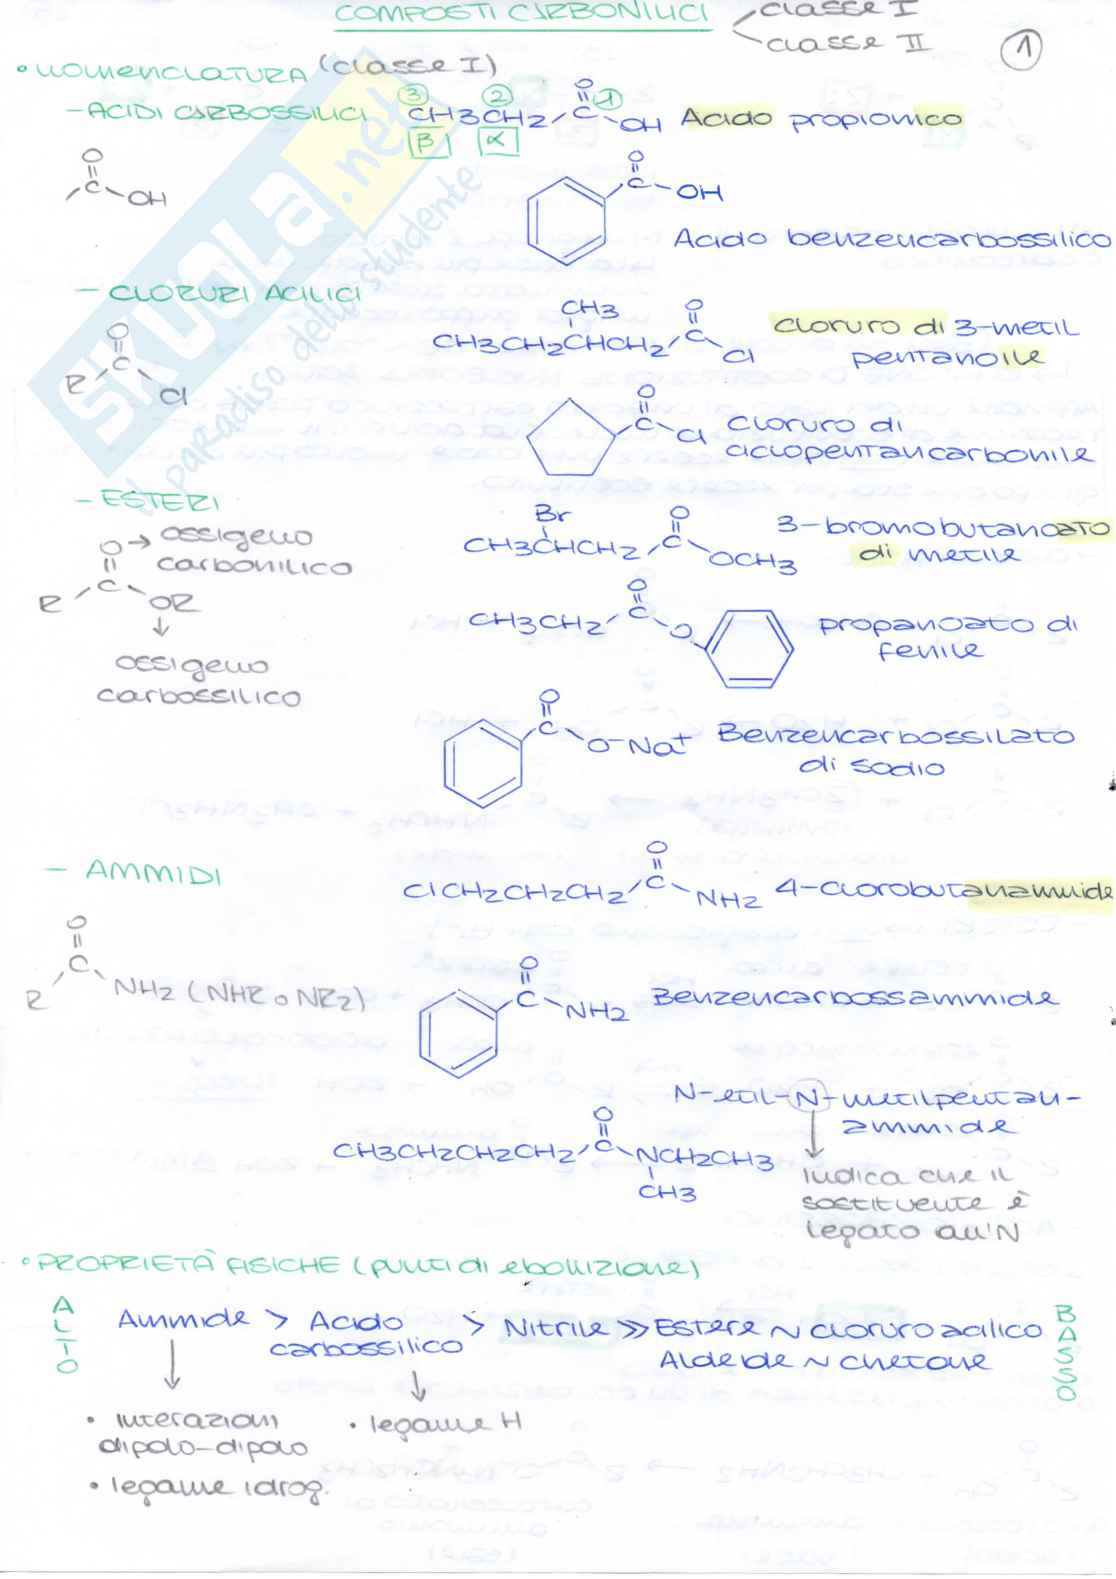 COMPOSTI CARBONILICI classe I
classe II
1
• NOMENCLATURA (classe I)
- ACIDI CARBOSSILICI
3 2 1
CH3CH2 C O OH Acido propionico
β α
O C OH
O C OH
Acido benzencarbossilico
- CLORURI ACILICI
O
R C Cl
CH3 O
CH3CH2CHCH2 C Cl
cloruro di 3-metil
pentanoile
O C Cl
cloruro di
ciclopentancarbonile
- ESTERI
O → ossigeno
carbonilico
R C OR
ossigeno
carbossilico
Br O
CH3CHCH2 C OCH3
3-bromobutanoato
di metile
O
CH3CH2 C O
propanoato di
fenile
O
C O-Na+
Benzencarbossilato
di sodio
- AMMIDI
O
ClCH2CH2CH2 C NH2 4-clorobutanammide
O
R C NH2 (NHR o NR2)
O
C NH2 Benzencarbossammide
N-etil-N-metilpentan-
ammide
O
CH3CH2CH2CH2 C NCH2CH3
CH3
indica che il
sostituente è
legato all'N
• PROPRIETÀ FISICHE (punti di ebollizione)
ALTO
Ammide > Acido
carbossilico
> Nitrile >> Estere ~ cloruro acilico
Aldeide ~ chetone
BASSO
• interazioni
dipolo-dipolo
• legame idrog.
• legame H
SKUOLA.net
il paradiso dello studente